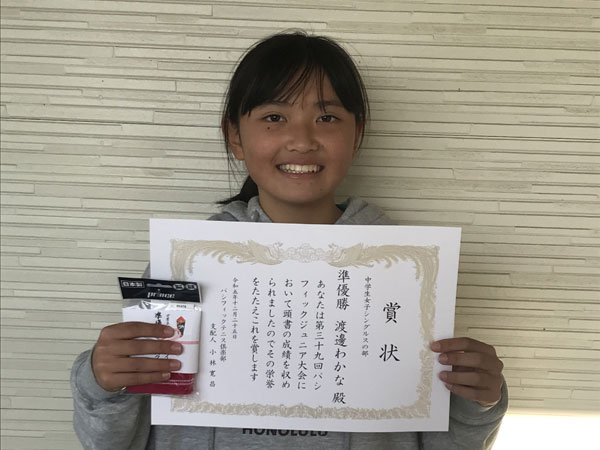 賞状
中学生女子シングルスの部
準優勝 渡邊わかな 殿
あなたは第三十九回パシ
フィックジュニア大会に
おいて頭書の成績を収め
られましたのでその栄誉
をたたえこれを賞します
令和五年十二月二十五日
パシフィックテニス倶楽部
支配人 小林 寛昌
日本製
HONOLULU